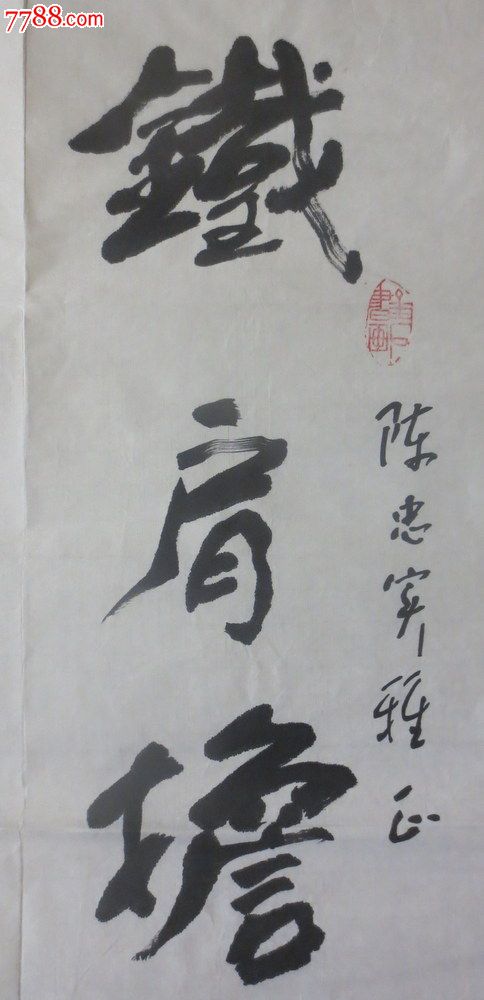 7788.com
陈忠实雅正
鐵肩擔